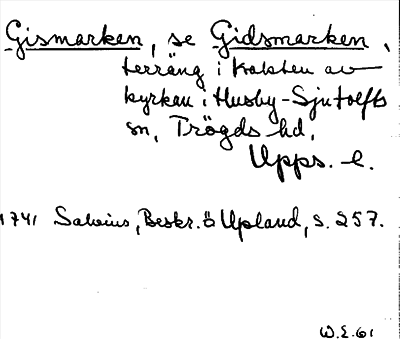 Gismarken, se Gidsmarken,
terräng i trakten av
kyrkan i Husby-Sjutolfts
sn, Trögds hd,
Upps. l.
1741 Salvius, Beskr. ö Upland, s. 257.
W.E. 61